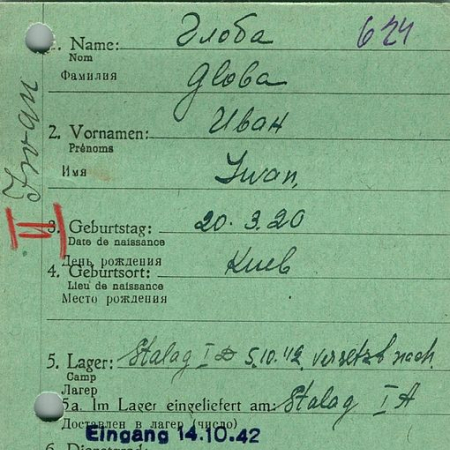 Глоба 624
1. Name:
Nom
Фамилия
Globa
Иван
2. Vornamen:
Prénoms
Имя
Iwan,
Iwan
II
3. Geburtstag: 20.3.20
Date de naissance
День рождения
4. Geburtsort: Киев
Lieu de naissance
Место рождения
5. Lager: Stalag I D 5.10.42 versetzt nach
Camp
Лагерь
5a. Im Lager eingeliefert am: Stalag I A
Доставлен в лагерь (число)
Eingang 14.10.42